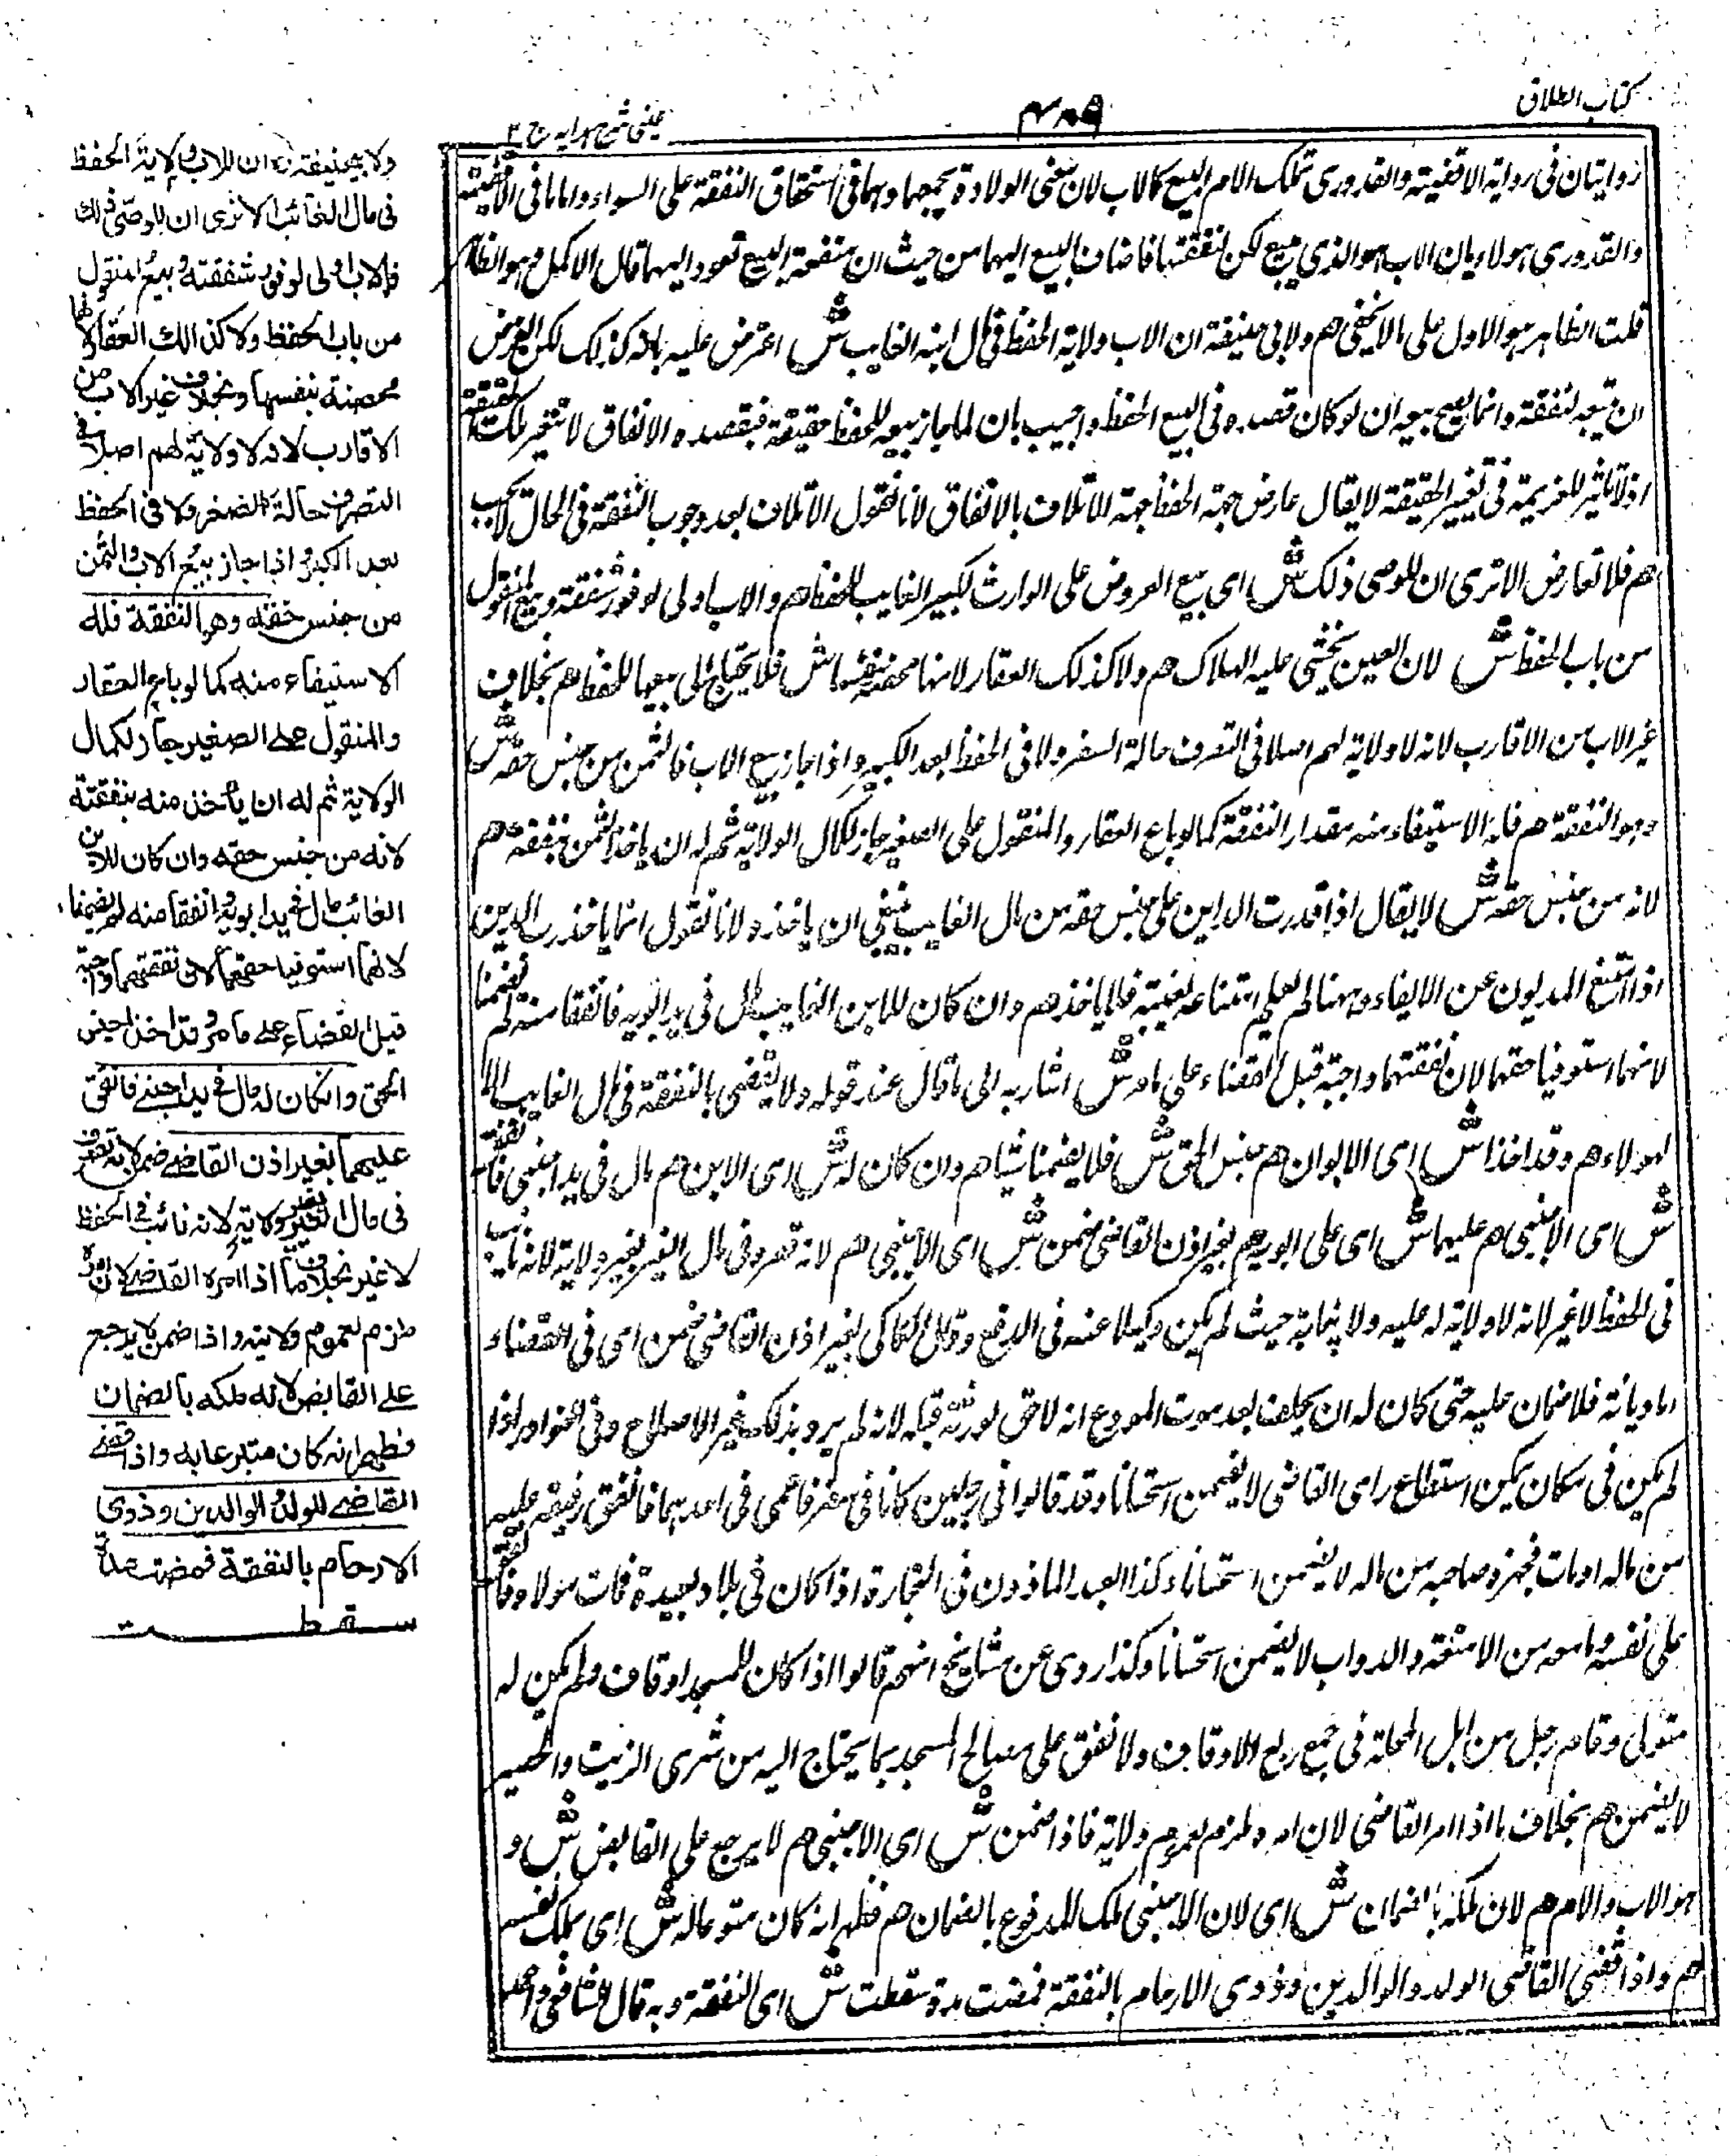 كتاب الطلاق
عينى شرح هدايه ج ٢
روايتان فى رواية الاقضية والقدورى تملك الام البيع كالاب لان معنى الولادة يجمعها وهما فى استحقاق النفقة على السواء واما ما فى الاقضية
والقدورى هو لا ديان الاب هو الذي يبيع لكن لنفقتها فاضاف البيع اليهما من حيث ان منفعة البيع تعود اليهما قال الاكمل وهو الظاهر
قلت الظاهر هو الاول على ما لا يخفى هم ولابى حنيفة ان الاب ولاية الحفظ فى مال ابنه الغايب ش اعترض عليه بانه كذلك لكن الغرض
ان يبيعه لنفقة وانما يصح بيعه ان لو كان قصده فى البيع الحفظ واجيب بان لما جاز بيعه للحفظ حقيقة فبقصده الانفاق لا تتغير تلك الحقيقة
اذ لا تاثير للعزيمة فى تغيير الحقيقة لا يقال عارض جهة الحفظ جهة الاتلاف بالانفاق لانا نقول الاتلاف بعد وجوب النفقة فى الحال لا يجب
هم فلا تعارض الا ترى ان للوصى ذلك ش اى بيع العروض على الوارث الكبير الغايب للحفظ هم والاب اولى لوفور شفقته وبيع المنقول
من باب الحفظ ش لان العين يخشى عليه الهلاك هم ولا كذلك العقار لانها محصنة بنفسها ش فلا يحتاج الى بيعها للحفظ هم بخلاف
غير الاب من الاقارب لانه لا ولاية لهم اصلا فى التصرف حالة السفر ولا فى الحفظ بعد الكبر واذا جاز بيع الاب فالثمن من جنس حقه ش
وهو النفقة هم فله الاستيفاء منه مقدار النفقة كما لو باع العقار والمنقول على الصغير جاز لكمال الولاية ثم له ان ياخذ الثمن بنفقته هم
لانه من جنس حقه ش لا يقال اذا قدرت الداين على جنس حقه من مال الغايب ينبغى ان ياخذه لانا نقول انما ياخذ رب الدين
اذا امتنع المديون عن الايفاء وههنا لم يعلم امتناعه لغيبة فلا ياخذ هم وان كان للابن الغايب مال فى يد ابويه فانفقا منه لم يضمنا
لانهما استوفيا حقهما لان نفقتهما واجبة قبل القضاء على ما مر ش اشار به الى ما قال عند قوله ولا يقضى بالنفقة فى مال الغايب الا
لهولاء هم وقد اخذا ش اى الابوان هم جنس الحق ش فلا يضمنا شيا هم وان كان له ش اى الابن هم مال فى يد اجنبى فانفق
ش اى الاجنبى هم عليهما ش اى على ابويه هم بغير اذن القاضى ضمن ش اى الاجنبى هم لانه تصرف فى مال الغير بغير ولاية لانه نايب
فى الحفظ لا غير لانه لا ولاية له عليه ولا نيابة حيث لم يكن وكيلا عنه فى الدفع وقال الكاكى بغير اذن القاضى ضمن اى فى القضاء
اما ديانة فلا ضمان عليه حتى كان له ان يحلف بعد موت المودع انه لا حق لورثته قبله لانه لم يرد بذلك غير الاصلاح وفى النوادر اذا
لم يكن فى مكان يمكن استطلاع راى القاضى لا يضمن استحسانا وقد قالوا فى رجلين كانا فى سفر فاغمى فى احدهما فانفق رفيقه عليه
من ماله او مات فجهزه صاحبه من ماله لا يضمن استحسانا وكذا العبد الماذون فى التجارة اذا كان فى بلاد بعيدة فمات مولاه فانفق
على نفسه وما معه من الامتعة والدواب لا يضمن استحسانا وكذا روى عن مشايخ انهم قالوا اذا كان للمسجد اوقاف ولم يكن له
متولى وقام رجل من اهل المحلة فى جمع ريع الاوقاف ولا نفق على مصالح المسجد بما يحتاج اليه من شرى الزيت والحصير
لا يضمن هم بخلاف ما اذا امر القاضى لان امره ملزم لعموم ولاية فاذا ضمن ش اى الاجنبى هم لا يرجع على القابض ش و
هو الاب والام هم لان ملكه بالضمان ش اى لان الاجنبى ملك المدفوع بالضمان هم فظهر انه كان متبرعا له ش اى بملك نفسه
هم واذا قضى القاضى للولد والوالدين وذوى الارحام بالنفقة فمضت مدة سقطت ش اى النفقة وبه قال الشافعى واحمد
ولابيحنيفة رح ان للاب ولاية الحفظ
فى مال الغائب الا ترى ان للوصى ذلك
فالاب اولى لوفور شفقته وبيع المنقول
من باب الحفظ ولا كذالك العقار لانها
محصنة بنفسها وبخلاف غير الاب من
الاقارب لانه لا ولاية لهم اصلا فى
التصرف حالة الصغر ولا فى الحفظ
بعد الكبر واذا جاز بيع الاب والثمن
من جنس حقه وهو النفقة فله
الاستيفاء منه كما لو باع العقار
والمنقول على الصغير جاز لكمال
الولاية ثم له ان يأخذ منه بنفقته
لانه من جنس حقه وان كان للابن
الغائب مال فى يد ابويه وانفقا منه لم يضمنا
لانهما استوفيا حقهما لان نفقتهما واجبة
قبل القضاء على ما مر وقد اخذا جنس
الحق وانكان له مال فى يد اجنبى فانفق
عليهما بغير اذن القاضى ضمن لانه تصرف
فى مال الغير بغير ولاية لانه نائب فى الحفظ
لا غير بخلاف ما اذا امره القاضى لان امره
ملزم لعموم ولايته واذا ضمن لا يرجع
على القابض لانه ملكه بالضمان
فظهر انه كان متبرعا به واذا قضى
القاضى للولد والوالدين وذوى
الارحام بالنفقة فمضت مدة
سقطت